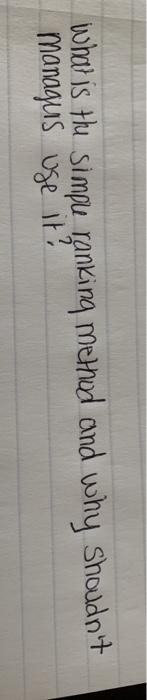 what is the simple ranking method and why shoudn't
managers use it?